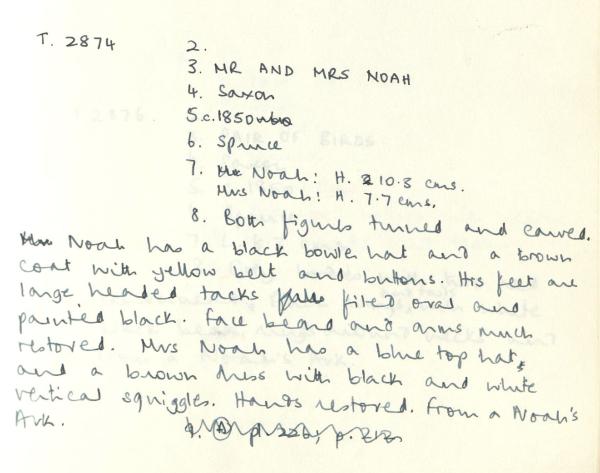 T. 2874
2.
3. MR AND MRS NOAH
4. Saxon
5. c. 1850
6. Spruce
7. Noah: H. 10.3 cms.
Mrs Noah: H. 7.7 cms.
8. Both figures turned and carved.
Noah has a black bowler hat and a brown
coat with yellow belt and buttons. His feet are
large headed tacks filed oval and
painted black. Face beard and arms much
restored. Mrs Noah has a blue top hat,
and a brown dress with black and white
vertical squiggles. Hands restored. From a Noah's
Ark.